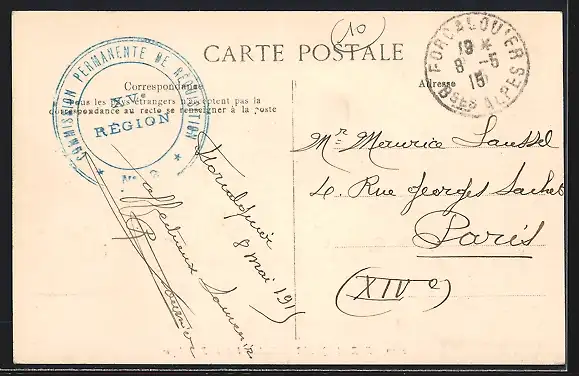 (10)
CARTE POSTALE
Correspondance
Tous les pays étrangers n'acceptent pas la
correspondance au recto se renseigner à la poste
Adresse
COMMISSION PERMANENTE DE RÉCEPTION
XVe
RÉGION
No 2
FORCALQUIER
19 *
8 -5
15
Bses ALPES
Forcalquier
8 mai 1915
affectueux Souvenir
Mr Maurice Laussel
4. Rue Georges Sachet
Paris
(XIVe)